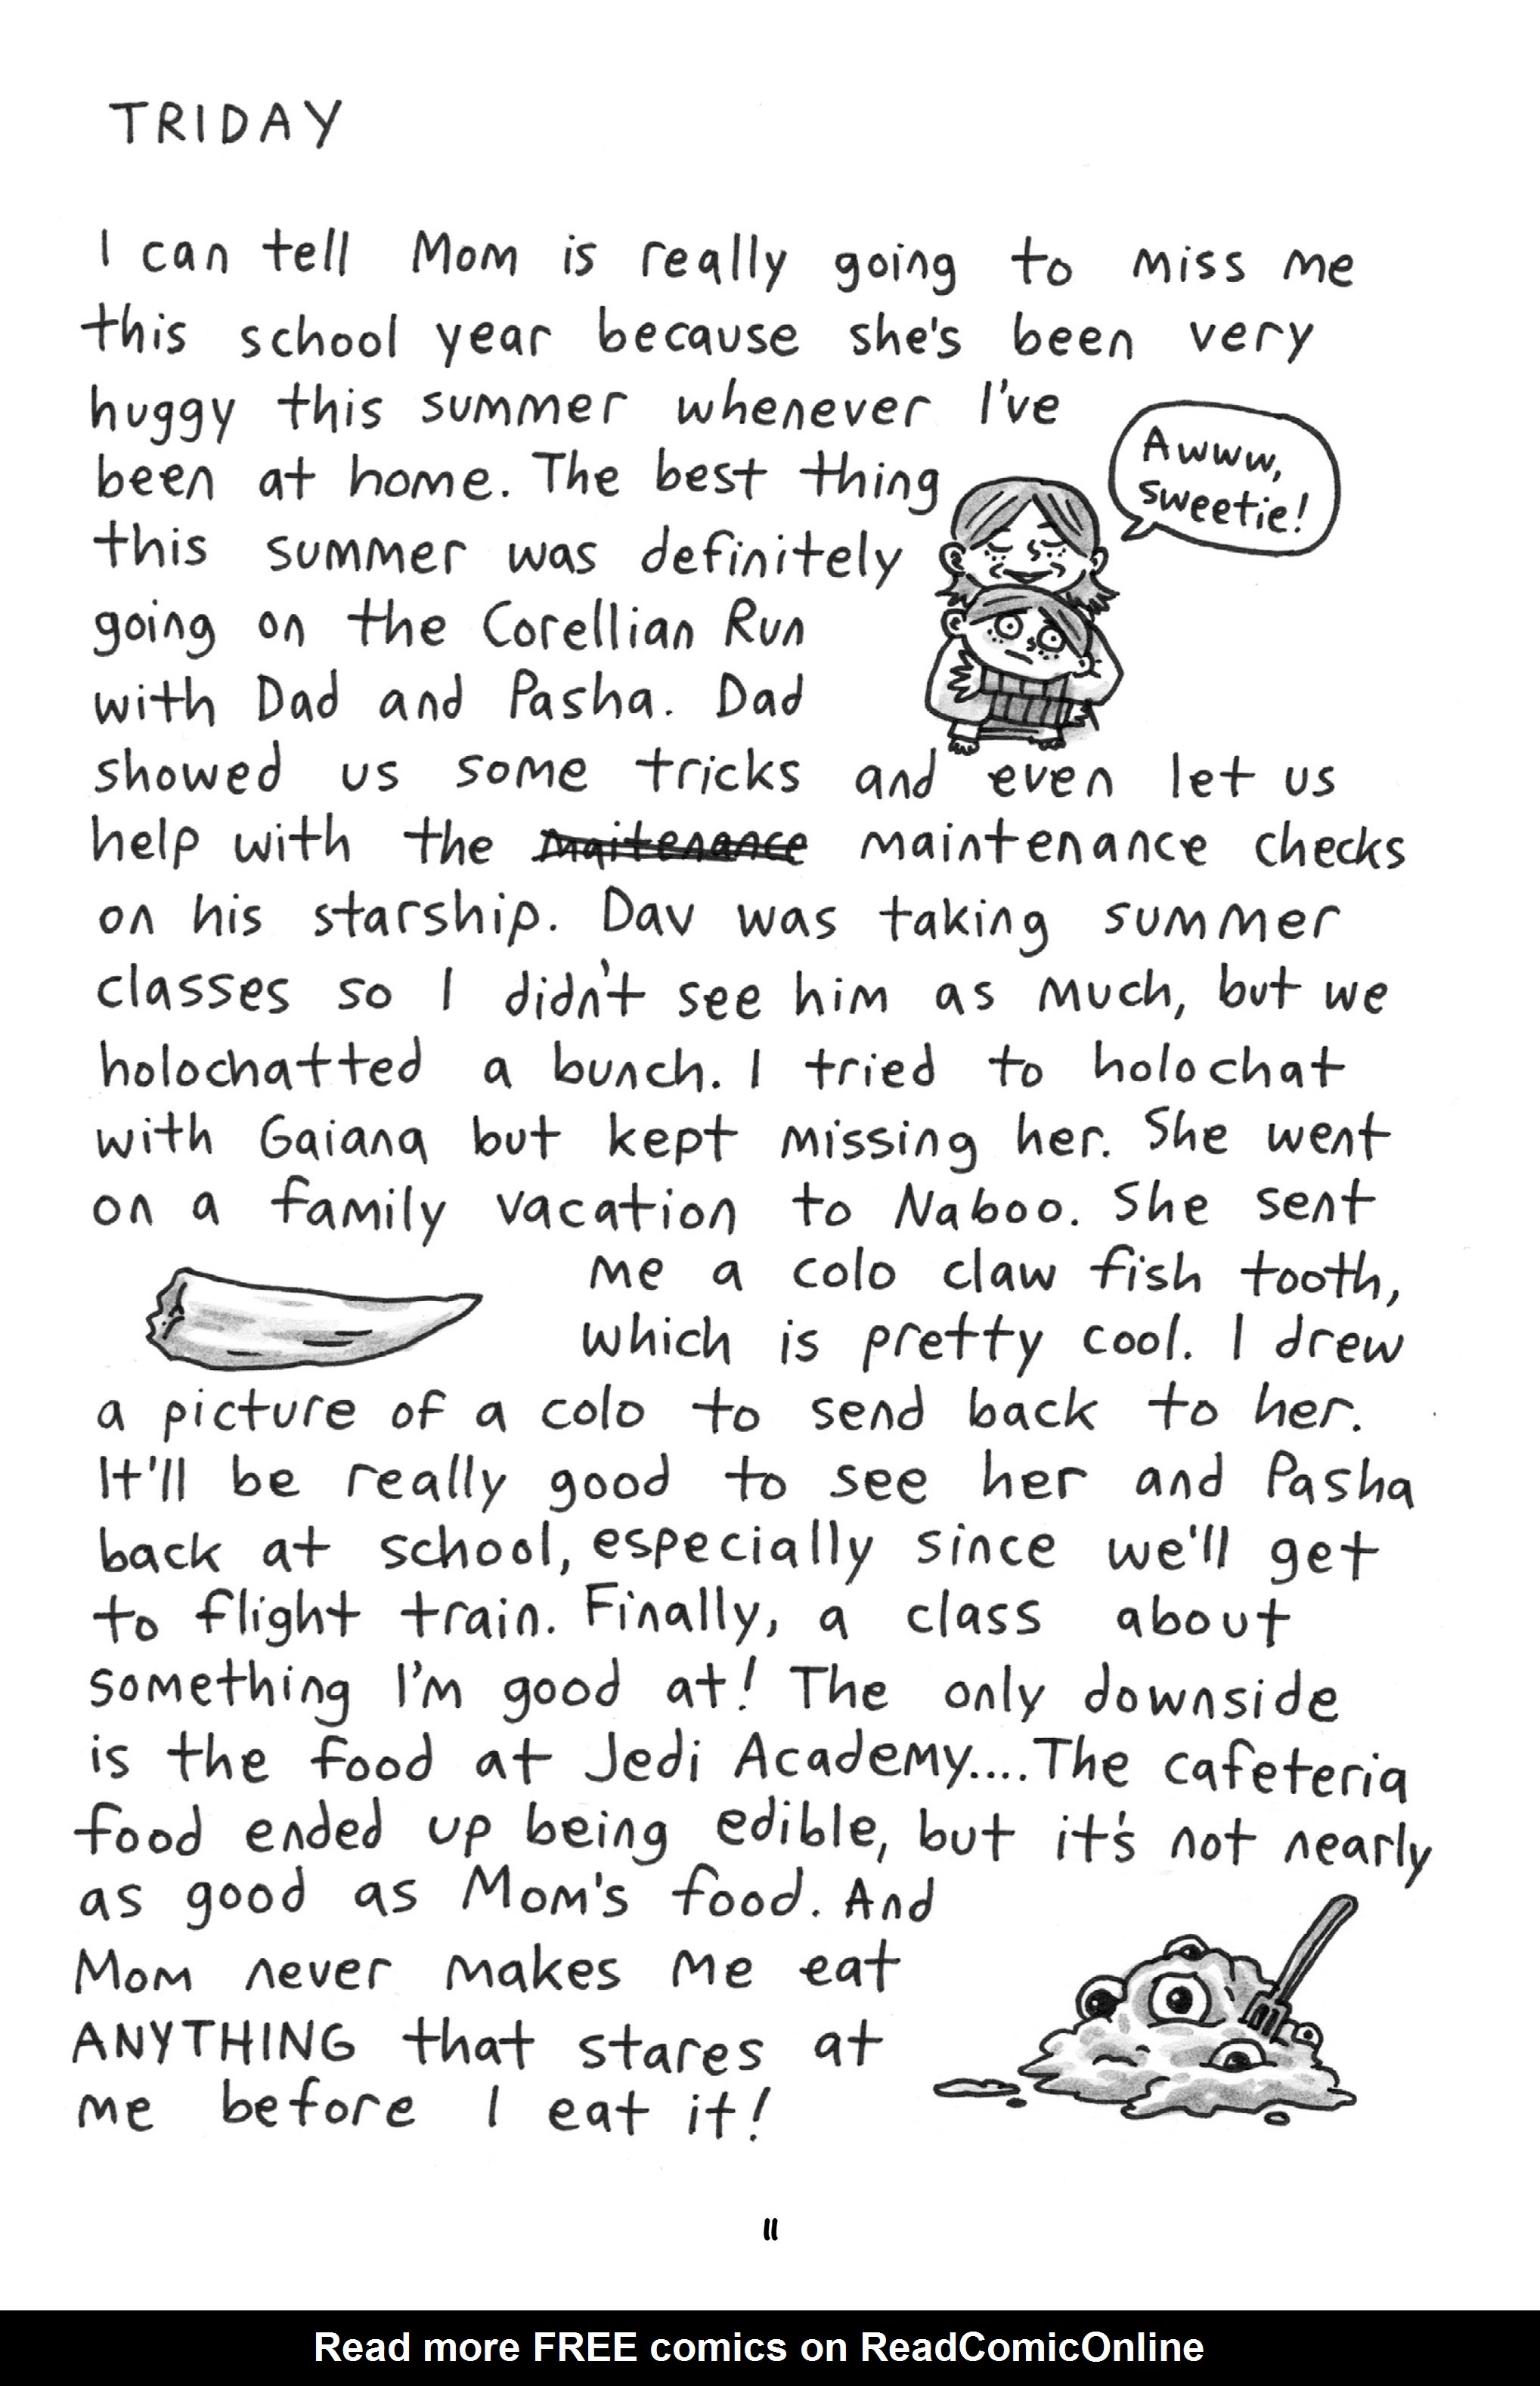 TRIDAY
I can tell Mom is really going to miss me
this school year because she's been very
huggy this summer whenever I've
been at home. The best thing
Awww,
sweetie!
this summer was definitely
going on the Corellian Run
with Dad and Pasha. Dad
showed us some tricks and even let us
help with the maitenance maintenance checks
on his starship. Dav was taking summer
classes so I didn't see him as much, but we
holochatted a bunch. I tried to holochat
with Gaiana but kept missing her. She went
on a family vacation to Naboo. She sent
me a colo claw fish tooth,
which is pretty cool. I drew
a picture of a colo to send back to her.
It'll be really good to see her and Pasha
back at school, especially since we'll get
to flight train. Finally, a class about
something I'm good at! The only downside
is the food at Jedi Academy....The cafeteria
food ended up being edible, but it's not nearly
as good as Mom's food. And
Mom never makes me eat
ANYTHING that stares at
me before I eat it!
11
Read more FREE comics on ReadComicOnline